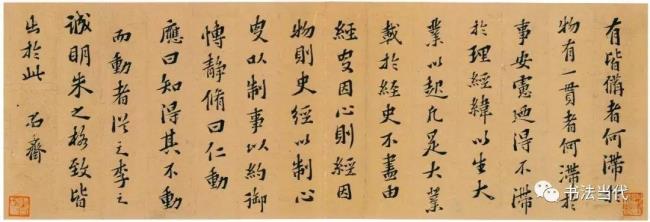 有皆備者何滯
物有一貫者何滯於
事安慮迺得不滯
於理經緯以生大
業以起凡是大業
載於經史不盡由
經史因心則經因
物則史經以制心
史以制事以約御
博靜脩曰仁動
應曰知得其不動
而動者從之李之
誠明朱之格致皆
出於此 石齋
书法当代